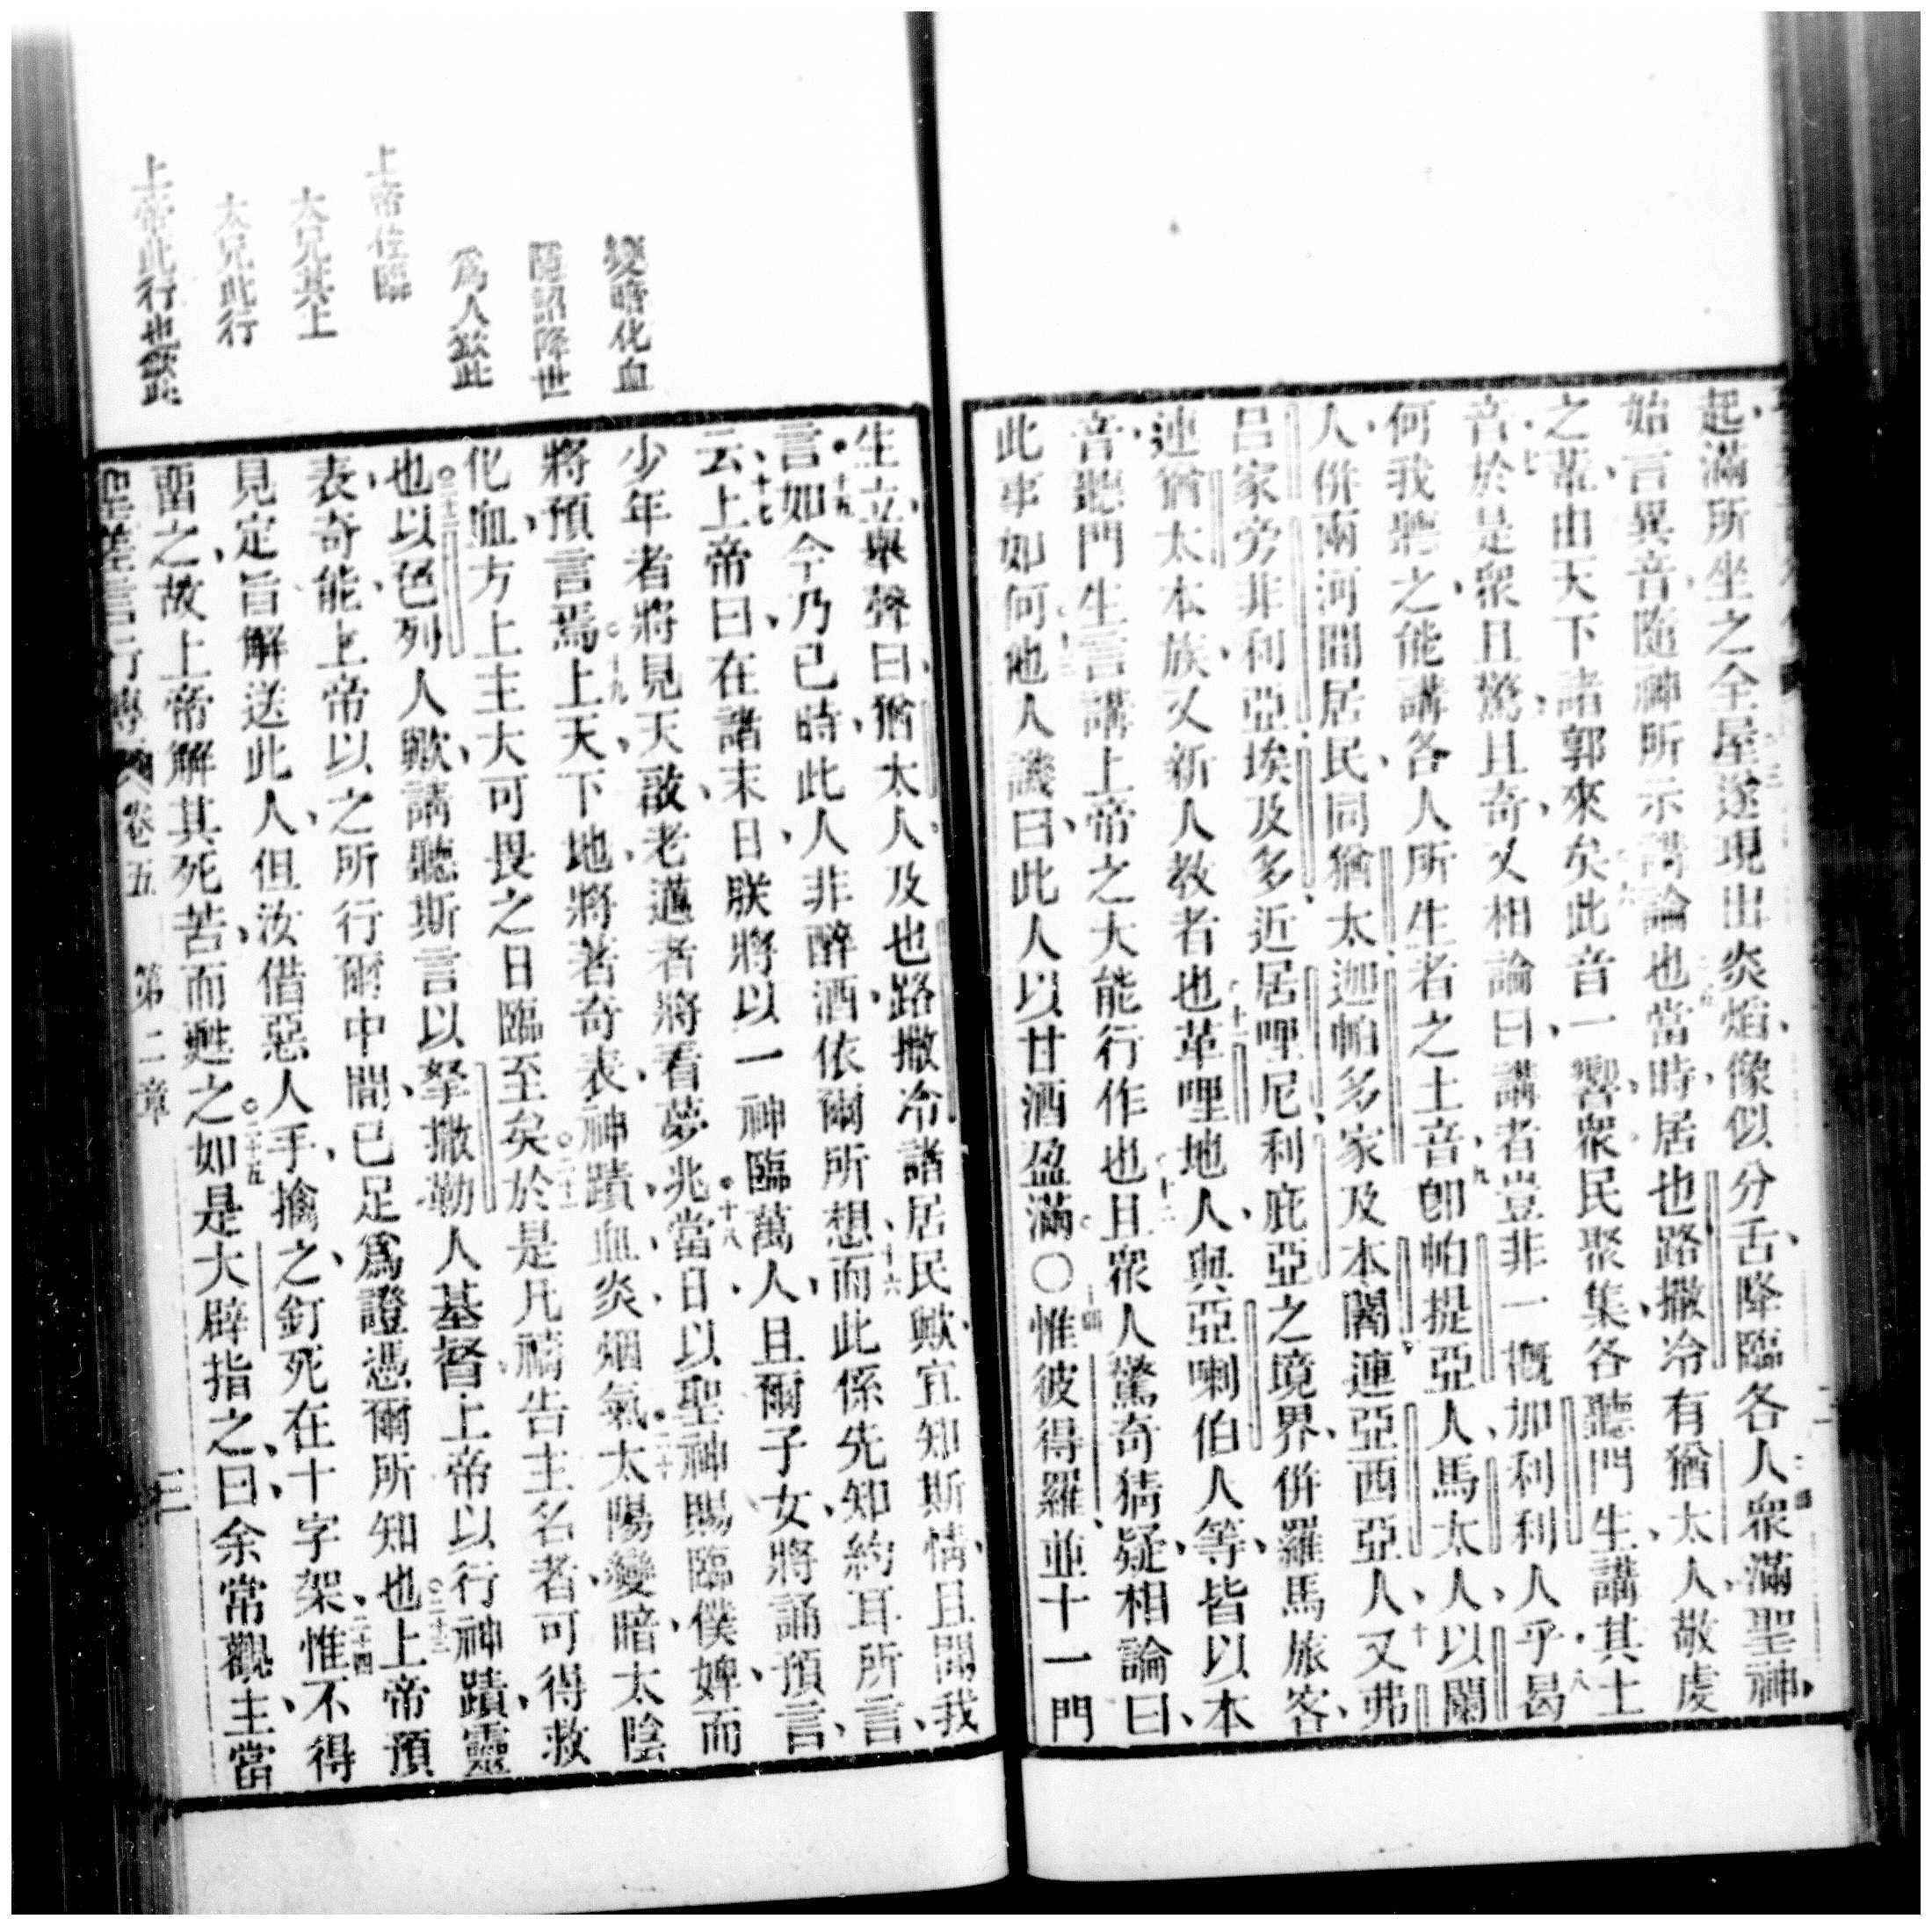 起滿所坐之全屋遂現出炎焰像似分舌降臨各人衆滿聖神
始言異音隨神所示講論也當時居也路撒冷有猶太人敬虔
之輩由天下諸郭來矣此音一響衆民聚集各聽門生講其土
音於是衆且驚且奇又相論曰講者豈非一概加利利人乎曷
何我聽之能講各人所生者之土音卽帕提亞人馬太人以闌
人併兩河間居民同猶太迦帕多家及本闍連亞西亞人又弗
呂家旁非利亞埃及多近居哩尼利庇亞之境界併羅馬旅客
連猶太本族又新人教者也革哩地人與亞喇伯人等皆以本
音聽門生言講上帝之大能行作也且衆人驚奇猜疑相論曰
此事如何他人譏曰此人以甘酒盈滿〇惟彼得羅並十一門
變暗化血
隨詔降世
爲人欽此
上帝位臨
大兄其上
太兄此行
上帝此行也欽此
生立舉聲曰猶太人及也路撒冷諸居民歟宜知斯情且聞我
言如今乃已時此人非醉酒依爾所想而此係先知約耳所言
云上帝曰在諸末日朕將以一神臨萬人且爾子女將誦預言
少年者將見天啟老邁者將看夢兆當日以聖神賜臨僕婢而
將預言焉上天下地將著奇表神蹟血炎烟氣太陽變暗太陰
化血方上主大可畏之日臨至矣於是凡禱告主名者可得救
也以色列人歟請聽斯言以拏撒勒人基督上帝以行神蹟靈
表奇能上帝以之所行爾中間已足爲證憑爾所知也上帝預
見定旨解送此人但汝借惡人手擒之釘死在十字架惟不得
畱之故上帝解其死苦而甦之如是大辟指之曰余常觀主當
聖差言行傳 卷五 第二章 三